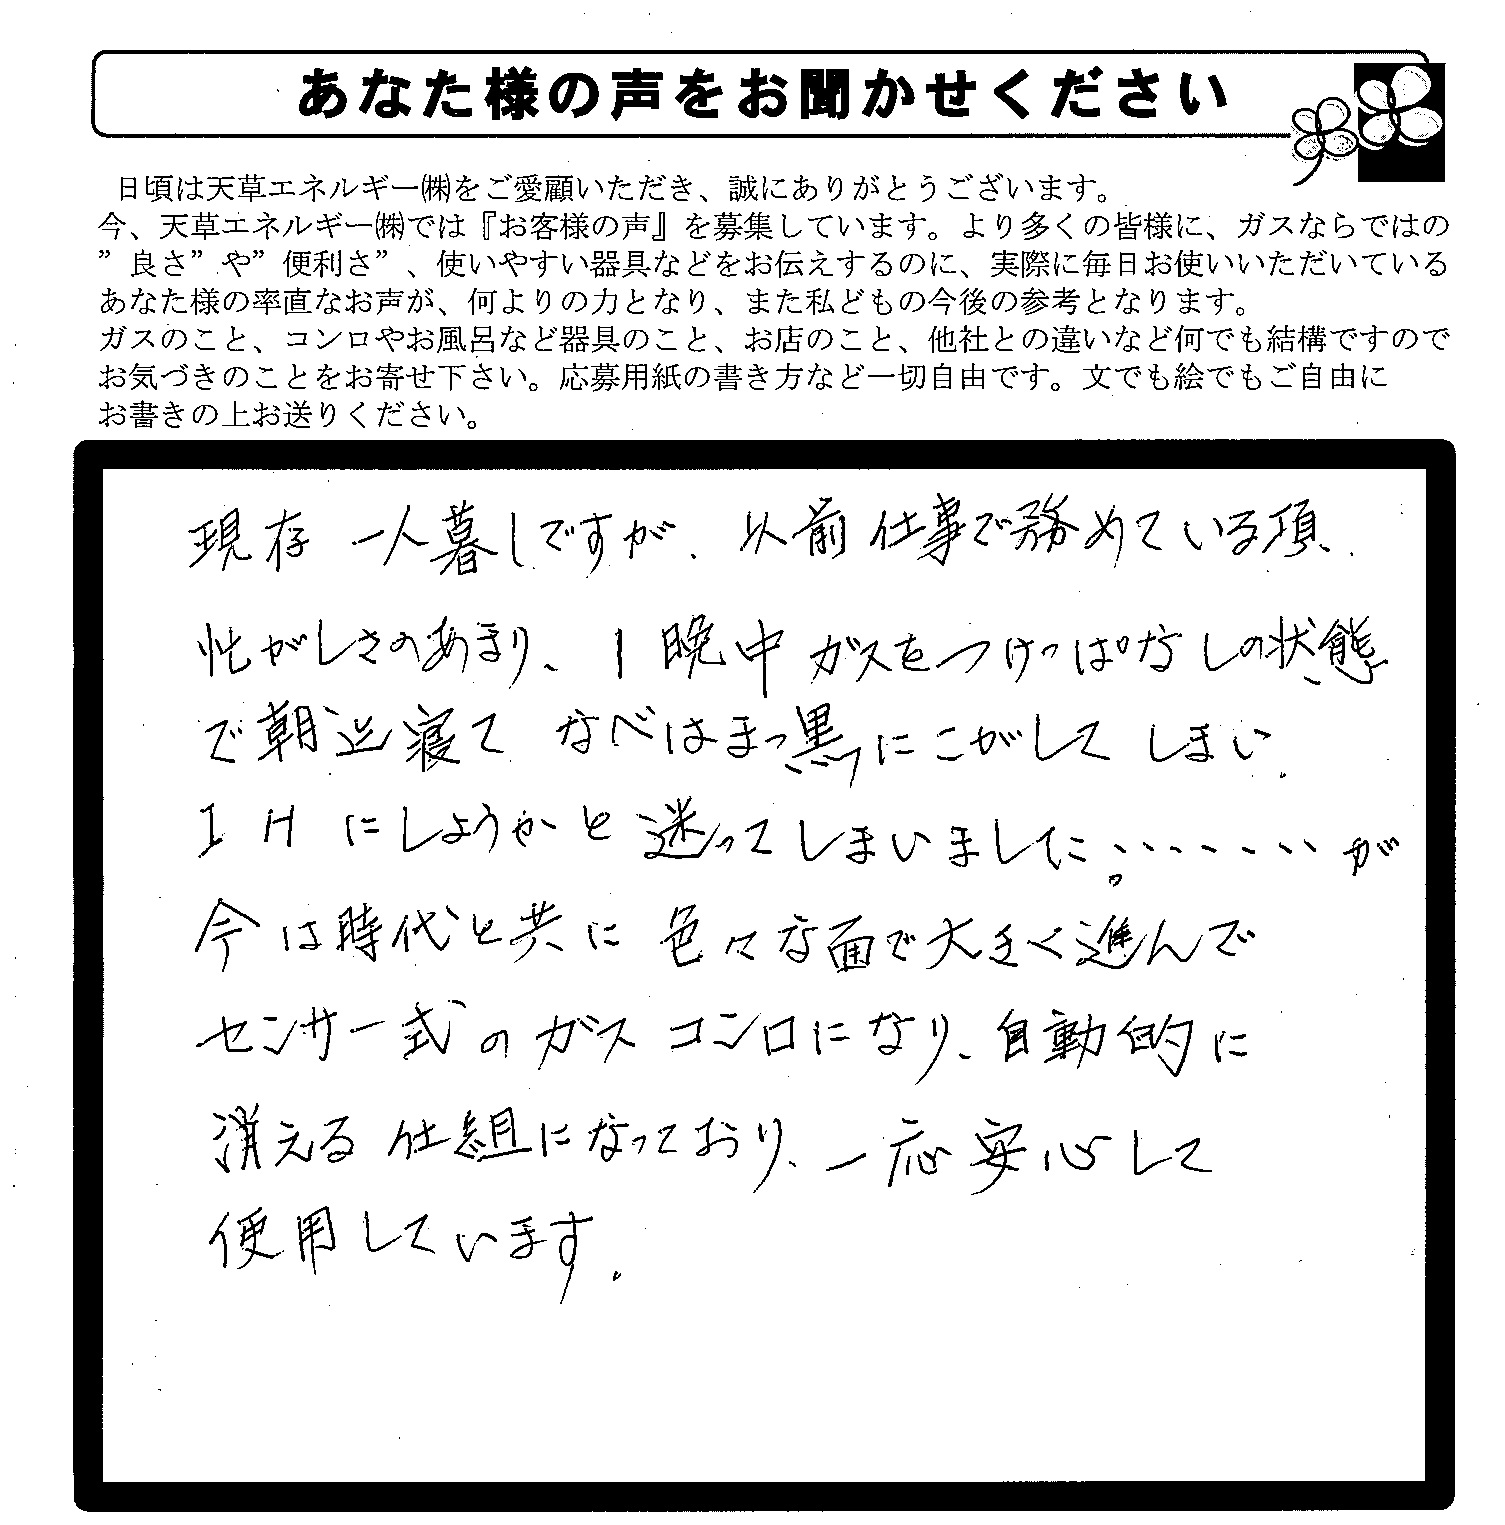 あなた様の声をお聞かせください
日頃は天草エネルギー㈱をご愛顧いただき、誠にありがとうございます。
今、天草エネルギー㈱では『お客様の声』を募集しています。より多くの皆様に、ガスならではの
”良さ”や”便利さ”、使いやすい器具などをお伝えするのに、実際に毎日お使いいただいている
あなた様の率直なお声が、何よりの力となり、また私どもの今後の参考となります。
ガスのこと、コンロやお風呂など器具のこと、お店のこと、他社との違いなど何でも結構ですので
お気づきのことをお寄せ下さい。応募用紙の書き方など一切自由です。文でも絵でもご自由に
お書きの上お送りください。
現存 一人暮しですが、以前仕事で務めている項、
忙がしさのあまり、1晩中ガスをつけっぱなしの状態
で朝迄寝て なべはまっ黒にこがしてしまい、
IHにしようかと迷ってしまいました。・・・・・・・が
今は時代と共に色々な面で大きく進んで
センサー式のガスコンロになり、自動的に
消える仕組になっており、一応安心して
使用しています。